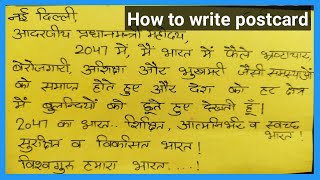 How to write postcard
नई दिल्ली,
आदरणीय प्रधानमन्त्री महोदय,
2047 में, मैं भारत में फैले भ्रष्टाचार,
बेरोजगारी, अशिक्षा और भुखमरी जैसी समस्याओं
को समाप्त होते हुए और देश को हर क्षेत्र
में बुलन्दियों को छूते हुए देखती हूँ।
2047 का भारत.. शिक्षित, आत्मनिर्भर व स्वच्छ
भारत!
सुरक्षित व विकसित भारत!
विश्वगुरु हमारा भारत....!